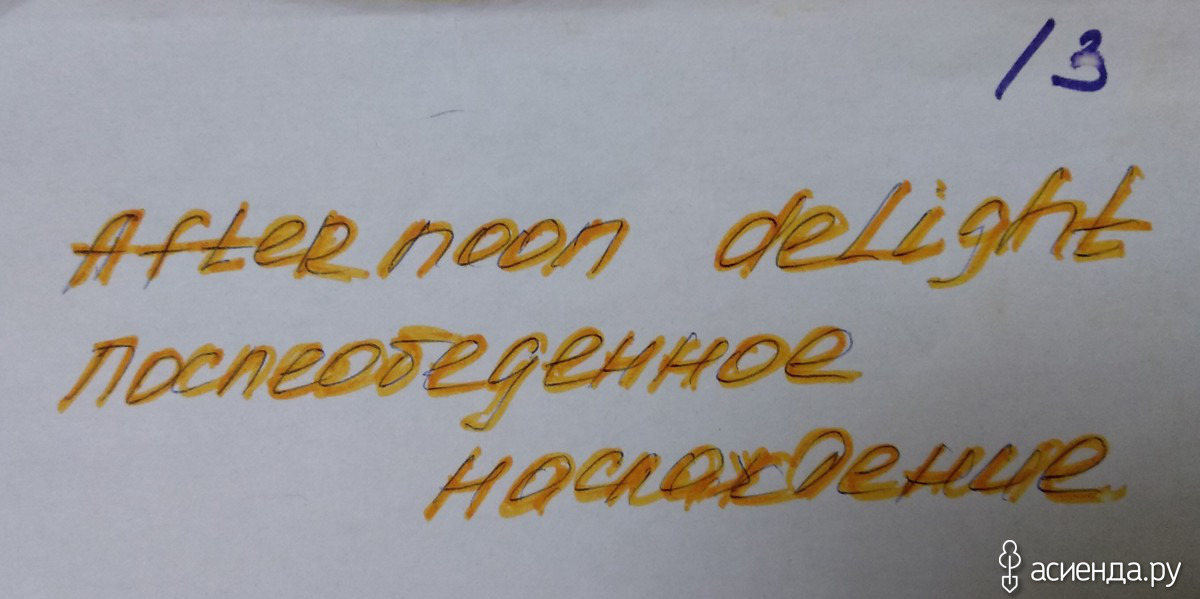 13
Afternoon deLight
Послеобеденное
наслаждение
асиенда.ру